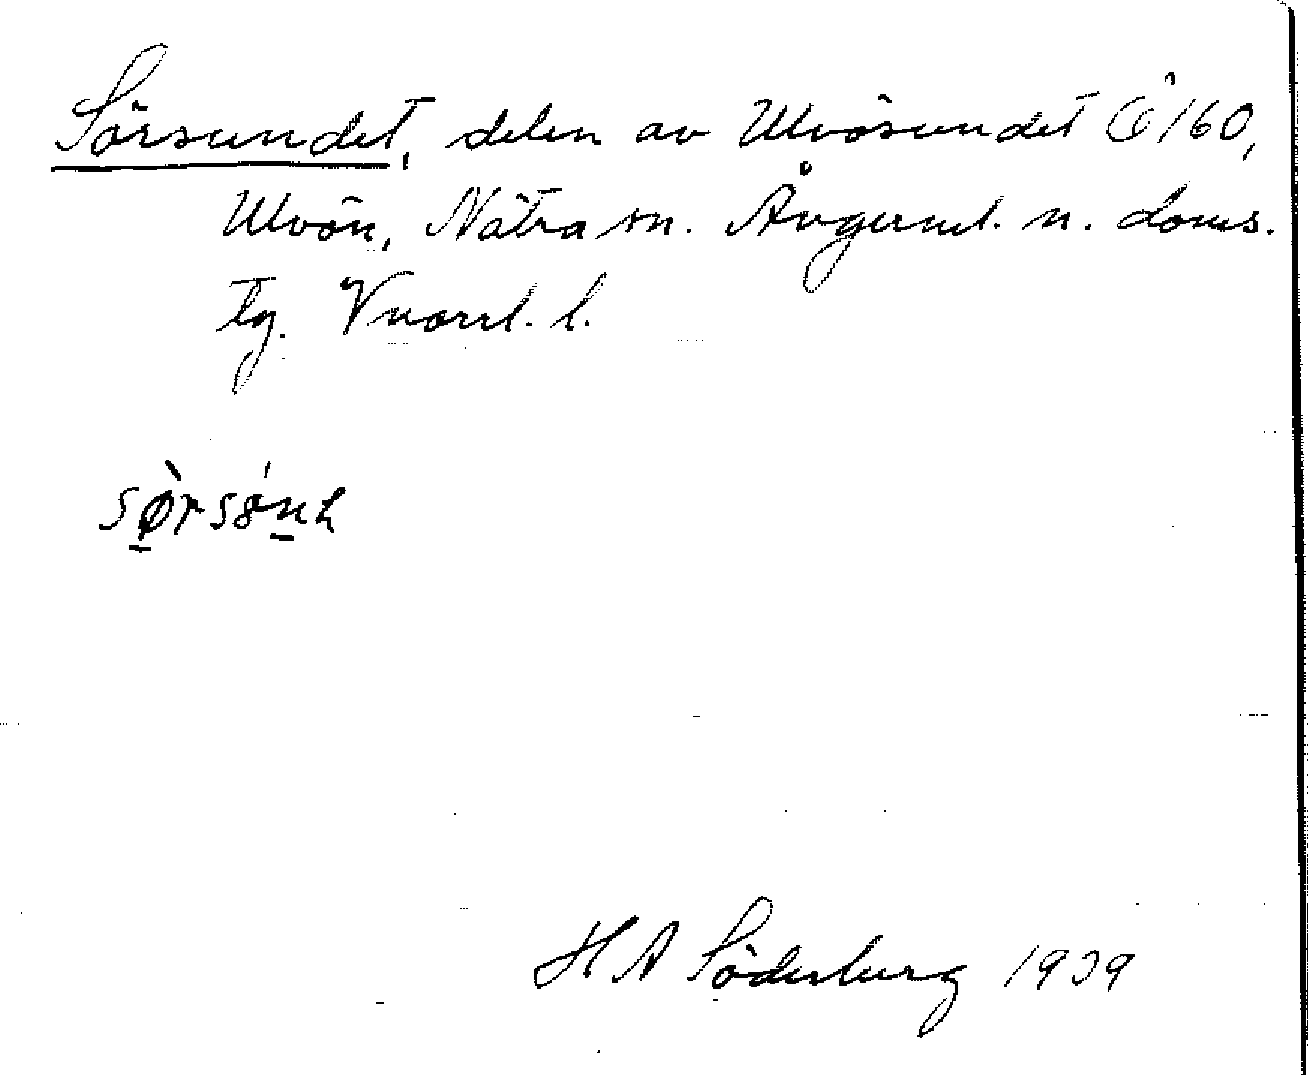 Sörsundet, delen av Ulvösundet Ö 160,
Ulvön, Nätra sn. Ångerml. n. doms.
tg. Vnorrl. l.
H A Söderberg 1939